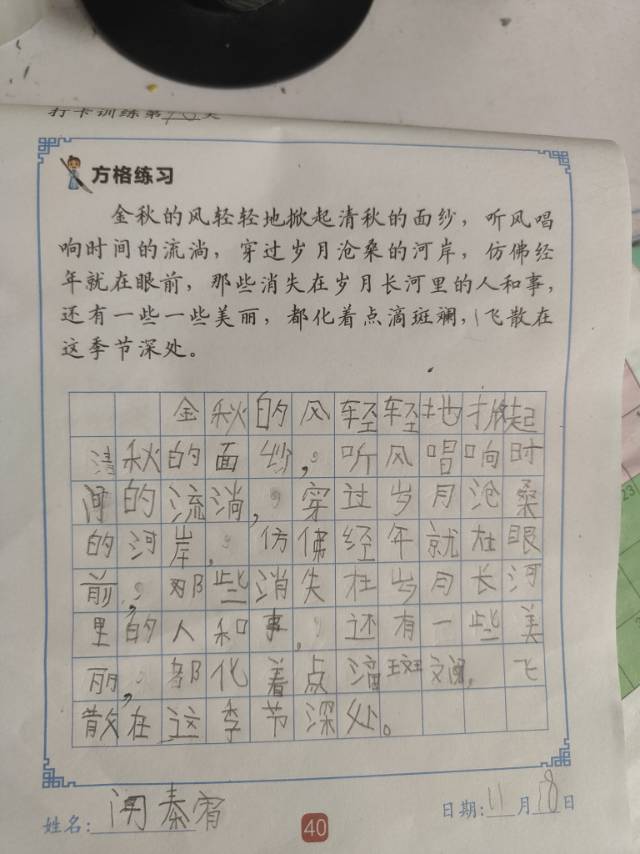 打卡训练第10天
方格练习
金秋的风轻轻地掀起清秋的面纱，听风唱
响时间的流淌，穿过岁月沧桑的河岸，仿佛经
年就在眼前，那些消失在岁月长河里的人和事，
还有一些一些美丽，都化着点滴斑斓，飞散在
这季节深处。
金秋的风轻轻地掀起
清秋的面纱，听风唱响时
间的流淌，穿过岁月沧桑
的河岸，仿佛经年就在眼
前，那些消失在岁月长河
里的人和事，还有一些美
丽，都化着点滴斑斓，飞
散在这季节深处。
姓名： 秦宥
40
日期: 11月18日